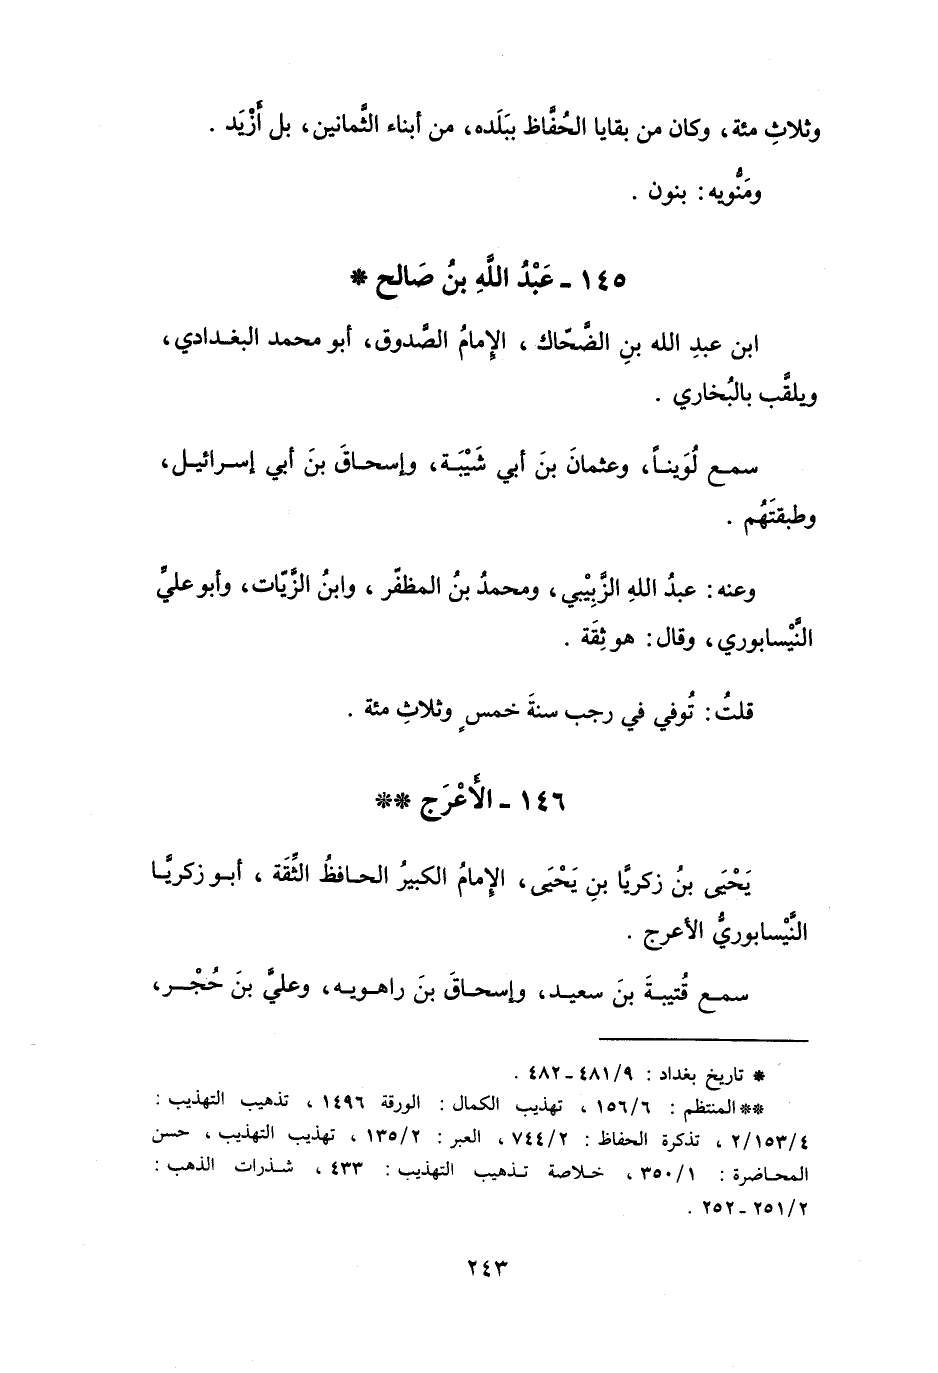 وثلاثِ مئة، وكان من بقايا الحُفَّاظ ببَلَده، من أبناء الثَّمانين، بل أَزْيَد .
ومَنُّويه : بنون .
١٤٥ - عَبْدُ اللَّهِ بنُ صَالح *
ابن عبدِ الله بنِ الضَّحّاك ، الإِمامُ الصَّدوق، أبو محمد البغـدادي،
ويلقَّب بالبُخاري .
سمـع لُوَينـاً، وعثمانَ بنَ أبي شَيْبَـة، وإسحـاقَ بنَ أبي إسـرائيـل،
وطبقتَهُم .
وعنه : عبدُ اللهِ الزَّبِيْبي، ومحمدُ بنُ المظفّر ، وابنُ الزَّيّات، وأبو عليٍّ
النَّيْسابوري، وقال : هو ثِقَة .
قلتُ : تُوفي في رجب سنةَ خمسٍ وثلاثِ مئة .
١٤٦ - الأَعْرَج **
يَحْيَى بنُ زكريَّا بنِ يَحْيَى، الإِمامُ الكبيرُ الحـافظُ الثِّقَة ، أبـو زكريَّـا
النَّيْسابوريُّ الأعرج .
سمـع قُتيبـةَ بنَ سعيـد، وإسحـاقَ بنَ راهـويـه، وعليَّ بنَ حُجْـر،
* تاريخ بغداد : ٤٨١/٩ - ٤٨٢ .
** المنتظم : ١٥٦/٦ ، تهذيب الكمال : الورقة ١٤٩٦ ، تذهيب التهذيب :
٢/١٥٣/٤ ، تذكرة الحفاظ : ٧٤٤/٢ ، العبر : ١٣٥/٢ ، تهذيب التهذيب ، حسن
المحاضرة : ٣٥٠/١ ، خـلاصة تـذهيب التهذيب : ٤٣٣ ، شـذرات الذهب :
٢٥١/٢ - ٢٥٢ .
٢٤٣